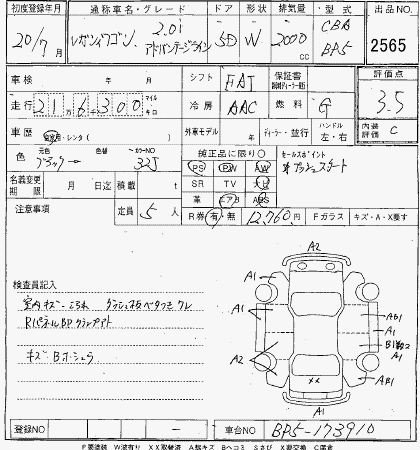 初度登録年月 通称車名・グレード ドア 形状 排気量 型式 出品NO
20/7月 レガシィワゴン 2.0i アドバンテージライン 5D W 2000cc CBA BP5 2565
車検 年 月 シフト FAT 保証書 評価点
走行 21万6千300 マイル キロ 冷房 AAC 燃料 G 3.5
車歴 自家用・レンタ 外車モデル 年 ディーラー・並行 ハンドル 左・右 内装評価 C
色 元色 ブラック 色替 カラーNO 32J 純正品に限り○ セールスポイント
名義変更期限 月 日迄 積載 t PS PW AW *プッシュスタート
SR TV ナビ
注意事項 定員 5人 革 エアB ABS
R券 有・無 12,760円 Fガラス キズ・A・X要す
検査員記入
室内キズ・ こワレ ダッシュ板ベタつき ワレ
RパネルBP
キズBホ・シュウ
A2
A1 A1
A1 AB1
A2
AB1
A1
XX
A1
登録NO ー 車台NO BP5-173910
P要塗装 W波有り XX取替済 A線キズ Bヘコミ Sさび X要交換 C腐食